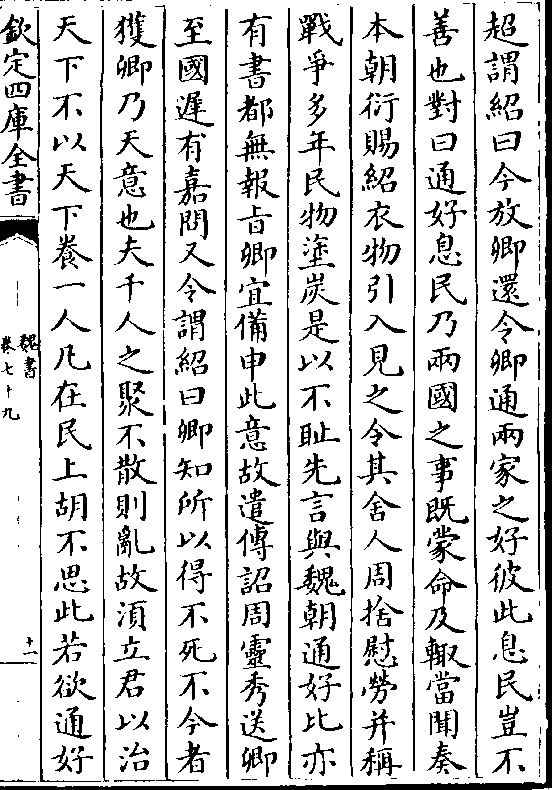 超謂紹曰今放卿還令卿通兩家之好彼此息民豈不
善也對曰通好息民乃兩國之事既蒙命及輙當聞奏
本朝衍賜紹衣物引入見之令其舍人周捨慰勞并稱
戰爭多年民物塗炭是以不恥先言與魏朝通好比亦
有書都無報旨卿宜備申此意故遣傳詔周靈秀送卿
至國遲有嘉問又令謂紹曰卿知所以得不死不今者
獲卿乃天意也夫千人之聚不散則亂故須立君以治
天下不以天下養一人凡在民上胡不思此若欲通好
欽定四庫全書
魏書
卷七十九
十一